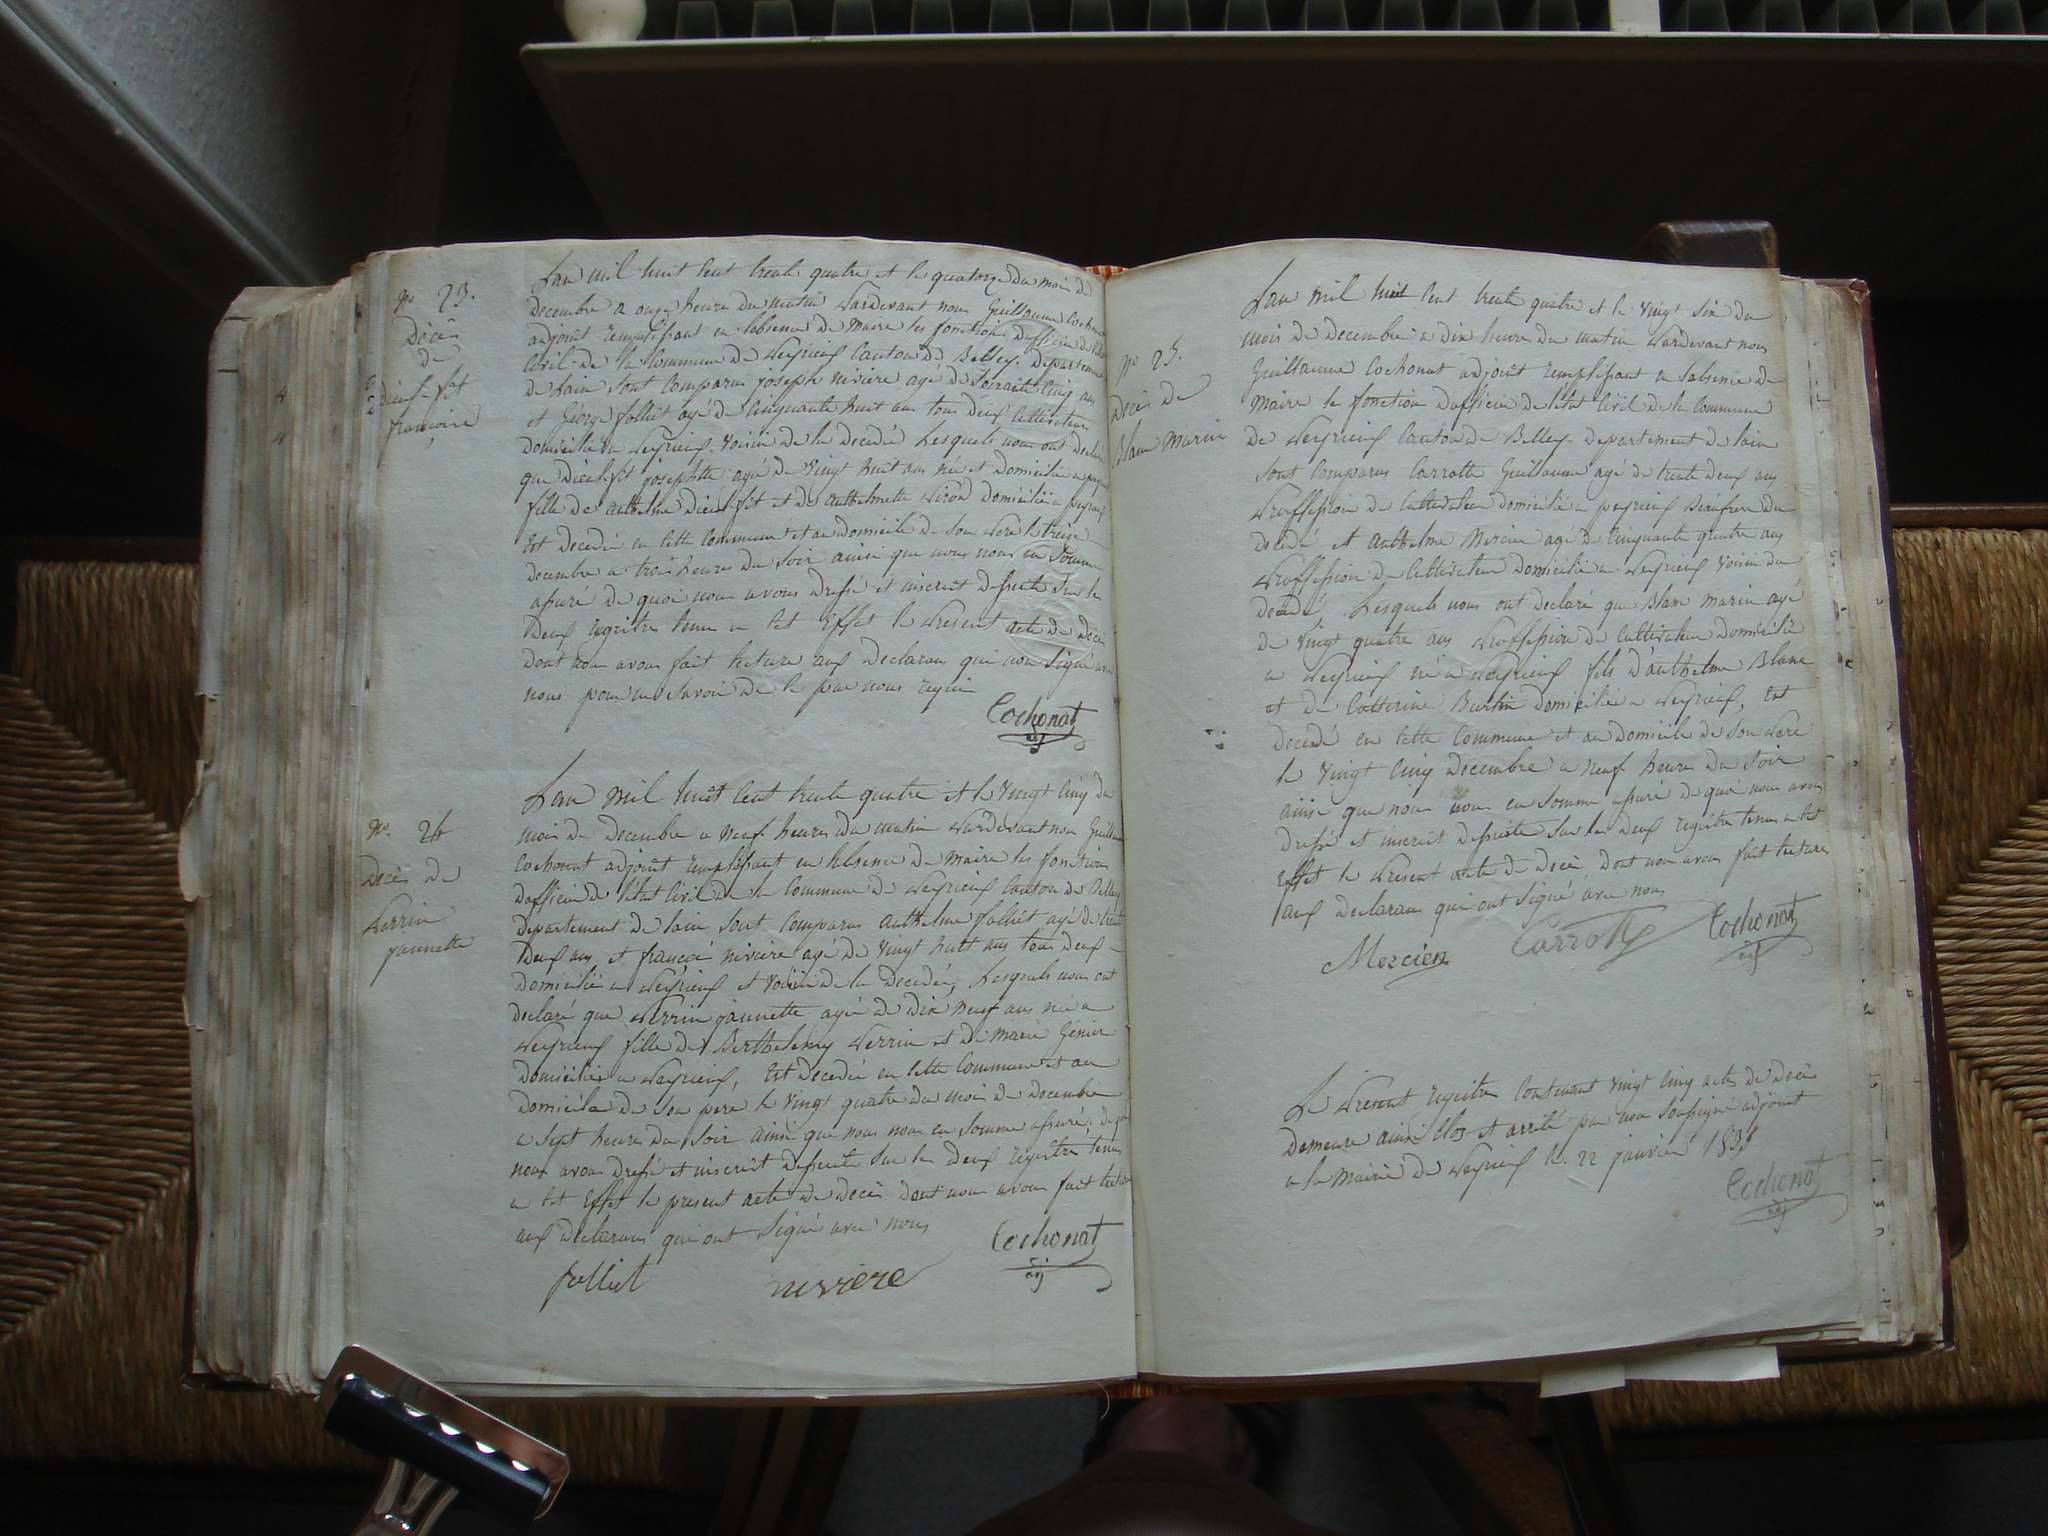 No 23.
Décès
de
dieu-fit
françoise
Lan mil huit Cent trente quatre et le quatorze du mois de
decembre a onze heure du matin Pardevant nous Guillaume Cochonat
adjoint remplissant en labsence de Maire les fonctions Dofficier de létat
Civil de la Commune de Peyrieux Canton de Belley departement
de lain sont Comparus joseph nivière agé de soixante Cinq ans
et George folliet agé de Cinquante huit ans tous deux Cultivateur
domicilié a Peyrieux voisin de la décédée Lesquels nous ont declaré
que Dieu-fit josephte agé de vingt huit ans née et Domicilié a peyrieux
fille de anthelme Dieu-fit et de anthelmette domicilié a peyrieux
Est decedée en cette Commune et au domicile de son Pere le treize
decembre a trois heures du soir ainsi que nous nous en Somme
assuré de quoi nous avons dressé et inscrit desuite sur les
deux registre tenu a cet Effet le Present acte de décè
dont nous avons fait lecture aux Declarans qui non Signé avec
nous pour ne savoir de le par nous requi
Cochonat
adj
No. 24
décès de
Perrin
jannette
Lan mil huit Cent trente quatre et le Vingt Cinq du
mois de Decembre a neuf heures du matin Pardevant nous Guillaume
Cochonat adjoint remplissant en labsence de Maire les fonctions
dofficier de létat Civil de la Commune de Peyrieux Canton de Belley
departement de lain sont Comparus anthelme folliet agé de trente
Deux ans et françoi nivière agé de vingt huit ans tous deux
domicilié a Peyrieux et voisin de la Decedée, Lesquels nous ont
declaré que Perrin jannette agé de dix neuf ans née a
Peyrieux fille de Berthelemy Perrin et de Marie Génier
domicilié a Peyrieux, Est décédée en cette Commune et au
domicile de son pere le vingt quatre du mois de decembre
a sept heures du soir ainsi que nous nous en somme assuré, de quoi
nous avons dressé et inscrit desuite sur les deux registre tenus
a cet Effet le present acte de décès dont nous avons fait lecture
aux declarans qui ont signé avec nous
folliet nivière Cochonat
adj
No 25.
décès de
Blanc Marin
Lan mil huit Cent trente quatre et le vingt six du
mois de decembre a dix heure du matin Pardevant nous
Guillaume Cochonat adjoint remplissant en labsence de
Maire le fonction dofficier de létat Civil de la Commune
de Peyrieux Canton de Belley departement de lain
sont Comparus Carrotte Guillaume agé de trente deux ans
Proffession de Cultivateur domicilié a peyrieux Beaufrere du
decedé et anthelme Mercien agé de Cinquante quatre ans
Proffession de Cultivateur domicilié a Peyrieux voisin du
decedé Lesquels nous ont declaré que Blanc marin agé
de vingt quatre ans Proffession de Cultivateur domicilié
a Peyrieux né a Peyrieux fils d'anthelme Blanc
et de Catterine Burtin domicilié a Peyrieux, Est
decedé en cette Commune et au domicile de son Pere
le vingt cinq decembre a neuf heure du soir
ainsi que nous nous en somme assuré de quoi nous avons
dressé et inscrit desuite sur les deux registre tenus a cet
Effet le Present acte de décè dont nous avons fait lecture
aux declarans qui ont signé avec nous
Mercien Carrotte Cochonat
adj
Le Present registre Contenant vingt Cinq actes de décè
demeure ainsi Clos et arrêté par nous soussigné adjoint
a la Mairie de Peyrieux le 22 janvier 1835
Cochonat
adj